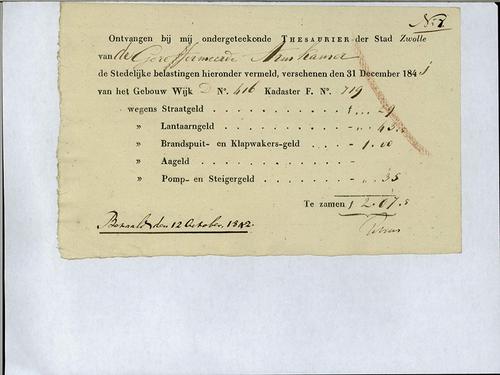 No. 7
Ontvangen bij mij ondergeteekonde THESAURIER der Stad Zwolle
van de Gereformeerde Armkamer
de Stedelijke belastingen hieronder vermeld, verschenen den 31 December 184
van het Gebouw Wijk D No. 416 Kadaster F. No. 719
wegens Straatgeld . . . . . . . . . . 29
» Lantaarngeld . . . . . . . . - 43.5
» Brandspuit- en Klapwakers-geld . . . . - 1.00
» Aageld . . . . . . . . . -
» Pomp- en Steigergeld . . . . . . - 35
Te zamen ƒ 2.07.5
Betaald den 12 October. 1842.